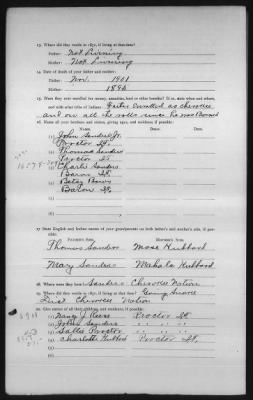 13. Where did they reside in 1851, if living at that time?
Father Not Living
Mother Not Living
14. Date of death of your father and mother:
Father Nov. 1901
Mother 1896
15. Were they ever enrolled for money, annuities, land or other benefits? If so, state when and where,
and with what tribe of Indians: Father enrolled as cherokee
and on all the rolls since he was Born
16. Name all your brothers and sisters, giving ages, and residence if possible:
NAME
(1) John Sanders Jr.
Proctor St.
(2) Thomas Sanders
Proctor St.
(3) Charles Sanders
Baron St.
(4) Betsy
Baron St.
17. State English and Indian names of your grandparents on both father's and mother's side, if possible:
FATHER'S SIDE MOTHER'S SIDE
Thomas Sanders Moses Hubbard
Mary Sanders Mahala Hubbard
18. Where were they born? Sanders Cherokee Nation
19. Where did they reside in 1851, if living at that time? Going Snake
Dist Cherokee Nation
20. Give names of all their children, and residence, if possible:
(1) Nancy J. Proctor St.
(2) John Sanders " " "
(3) Sallie Proctor " " "
(4) Charlotte Proctor St.